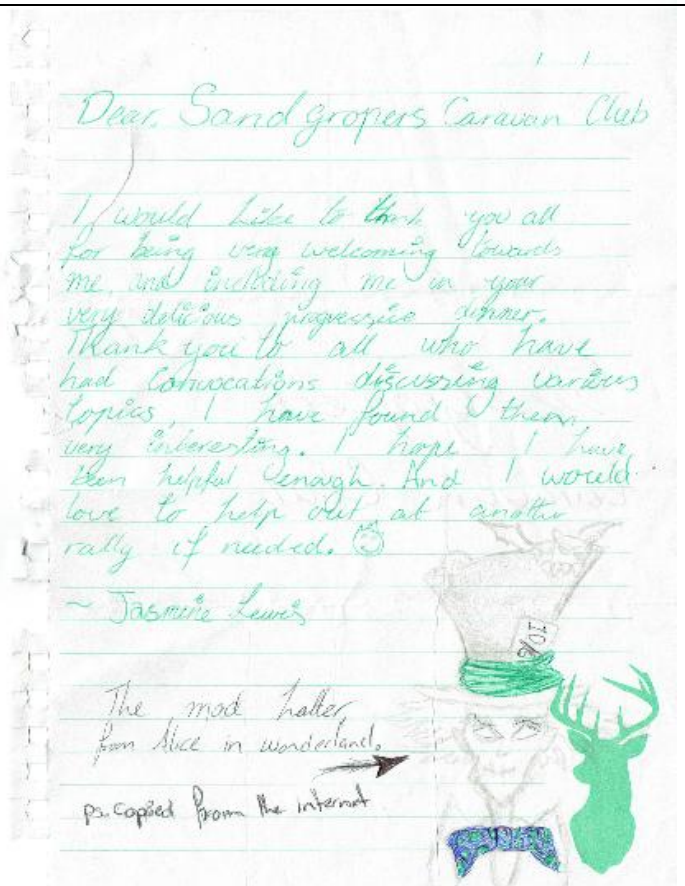 Dear, Sandgropers Caravan Club
I would like to thank you all
for being very welcoming towards
me, and including me in your
very delicious progressive dinner.
Thank you to all who have
had convocations discussing various
topics, I have found them
very interesting. I hope I have
been helpful enough. And I would
love to help out at another
rally if needed. ☺
~ Jasmine Lewis
10/6
The mad hatter
from Alice in wonderland.
ps. copied from the internet